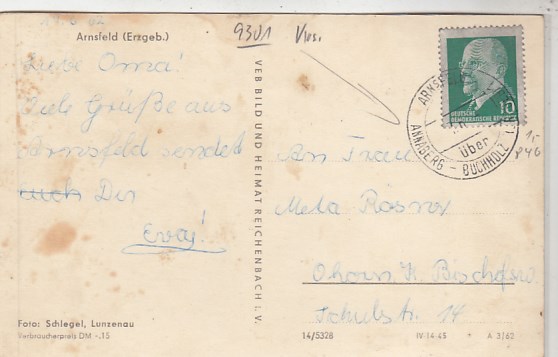 11.6.62
Arnsfeld (Erzgeb.)
Liebe Oma!
Viele Grüße aus
Arnsfeld sendet
auch Dir
Eva!
9301
VEB BILD UND HEIMAT REICHENBACH i. V.
DEUTSCHE
DEMOKRATISCHE REPUBLIK
10
ARNSFELD
über
ANNABERG - BUCHHOLZ
An Frau
Meta Rösner
K. Bischofsw
Schulstr. 14
Foto: Schlegel, Lunzenau
Verbraucherpreis DM -.15
14/5328 IV-14-45 * A 3/62